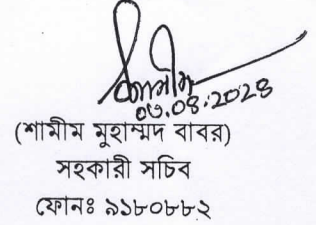 শামীম
০৩.০৪.২০২৪
(শামীম মুহাম্মদ বাবর)
সহকারী সচিব
ফোনঃ ৯১৮০৮৮২